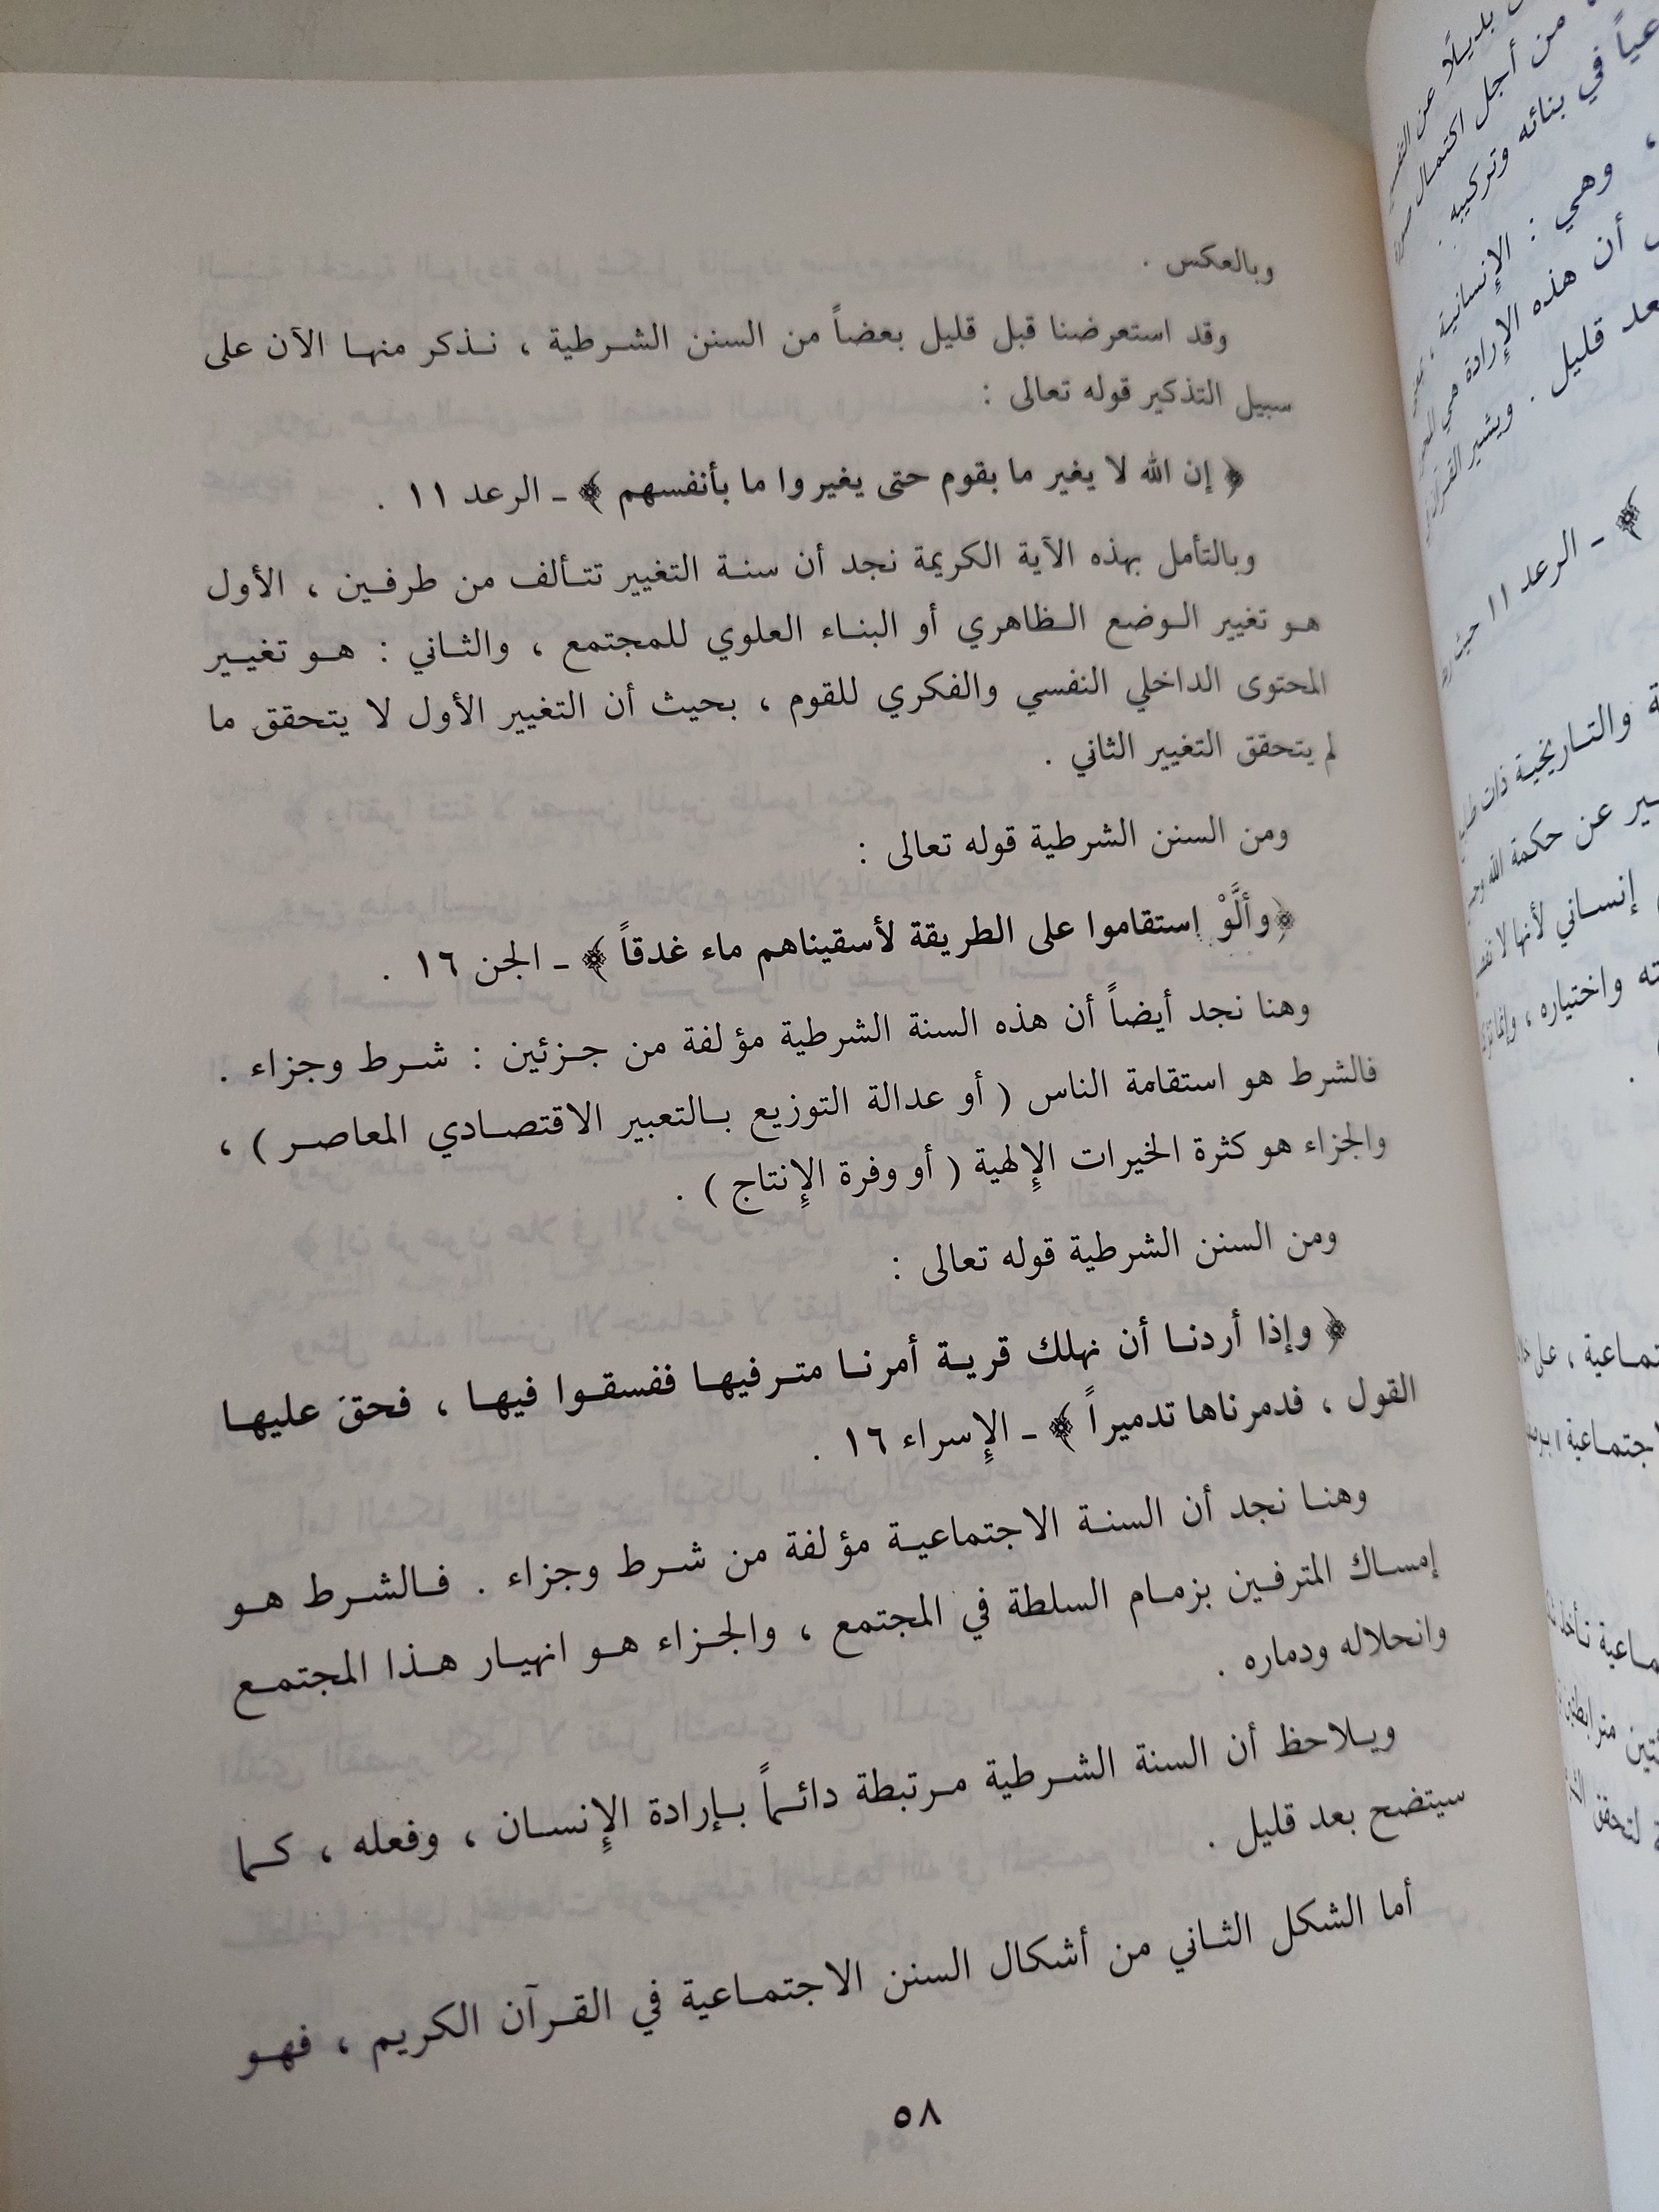 وبالعكس .
وقد استعرضنا قبل قليل بعضاً من السنن الشرطية ، نذكر منها الآن على
سبيل التذكير قوله تعالى :
﴿ إن الله لا يغير ما بقوم حتى يغيروا ما بأنفسهم ﴾ ـ الرعد ١١ .
وبالتأمل بهذه الآية الكريمة نجد أن سنة التغيير تتألف من طرفين ، الأول
هو تغيير الوضع الظاهري أو البناء العلوي للمجتمع ، والثاني : هو تغيير
المحتوى الداخلي النفسي والفكري للقوم ، بحيث أن التغيير الأول لا يتحقق ما
لم يتحقق التغيير الثاني .
ومن السنن الشرطية قوله تعالى :
﴿وألَّوْ إستقاموا على الطريقة لأسقيناهم ماء غدقاً ﴾ ـ الجن ١٦ .
وهنا نجد أيضاً أن هذه السنة الشرطية مؤلفة من جزئين : شرط وجزاء .
فالشرط هو استقامة الناس ( أو عدالة التوزيع بالتعبير الاقتصادي المعاصر ) ،
والجزاء هو كثرة الخيرات الإلهية ( أو وفرة الإنتاج ) .
ومن السنن الشرطية قوله تعالى :
﴿ وإذا أردنا أن نهلك قرية أمرنا مترفيها ففسقوا فيها ، فحق عليها
القول ، فدمرناها تدميراً ﴾ ـ الإسراء ١٦ .
وهنا نجد أن السنة الاجتماعية مؤلفة من شرط وجزاء . فالشرط هو
إمساك المترفين بزمام السلطة في المجتمع ، والجزاء هو انهيار هذا المجتمع
وانحلاله ودماره .
ويلاحظ أن السنة الشرطية مرتبطة دائماً بإرادة الإنسان ، وفعله ، كما
سيتضح بعد قليل .
أما الشكل الثاني من أشكال السنن الاجتماعية في القرآن الكريم ، فهو
٥٨
بديلًا عن
من أجل اكتمال
في بنائه وتركيبه .
، وهي : الإنسانية ،
أن هذه الإرادة هي
قليل . ويشير
﴾ ـ الرعد ١١ حيث
والتاريخية ذات
عن حكمة الله
إنساني لأنها لا
واختياره ، وإنما